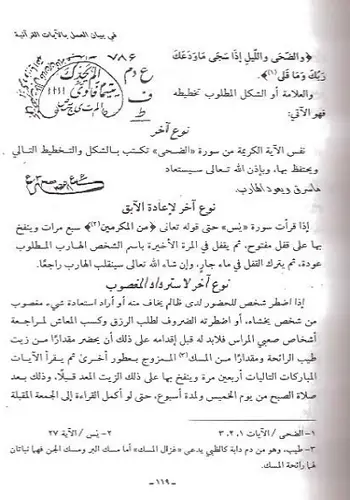 في بيان العمل بالآيات القرآنية
﴿والضّحى والليل إذا سَجى مَا ودّعَكَ
رَبّكَ وَمَا قَلى﴾(١)
والعلامة أو الشكل المطلوب تخطيطه
فهو الآتي:
٧٨٦
ع د م
ف
ط
نوع آخر
نفس الآية الكريمة من سورة «الضحى» تكتب بالشكل والتخطيط التالي
ويحتفظ بها، وبإذن الله تعالى سيستعاد
ماسرق ويعود الهارب.
نوع آخر لإعادة الآبق
إذا قرأت سورة «يس» حتى قوله تعالى ﴿من المكرمين﴾(٢) سبع مرات وينفخ
بها على قفل مفتوح، ثم يقفل في المرة الأخيرة باسم الشخص الهارب المطلوب
عودة، ثم يترك القفل في ماء جارٍ، وإن شاء الله تعالى سينقلب الهارب راجعًا.
نوع آخر لاسترداد المغصوب
إذا اضطر شخص للحضور لدى ظالم يخاف منه أو أراد استعادة شيء مغصوب
من شخص يخشاه، أو اضطرته الظروف لطلب الرزق وكسب المعاش لمراجعة
أشخاص صعبي المراس فلابد له قبل إقدامه على ذلك أن يحضر مقدارًا من زيت
طيب الرائحة ومقدارًا من المسك(٣) الممزوج بعطور أخرى ثم يقرأ الآيات
المباركات التاليات أربعين مرة وينفخ بها على ذلك الزيت المعد قبلًا، وذلك بعد
صلاة الصبح من يوم الخميس ولمدة أسبوع، حتى لو أكمل القراءة إلى الجمعة المقبلة
١- الضحى / الآيات ١، ٢، ٣ ٢- يس / الآية ٢٧
٣- طيب، وهو من دم دابة كالظبي يدعى «غزال المسك» أما مسك البر ومسك الجن فهما نباتان
لهما رائحة المسك.
-١١٩-